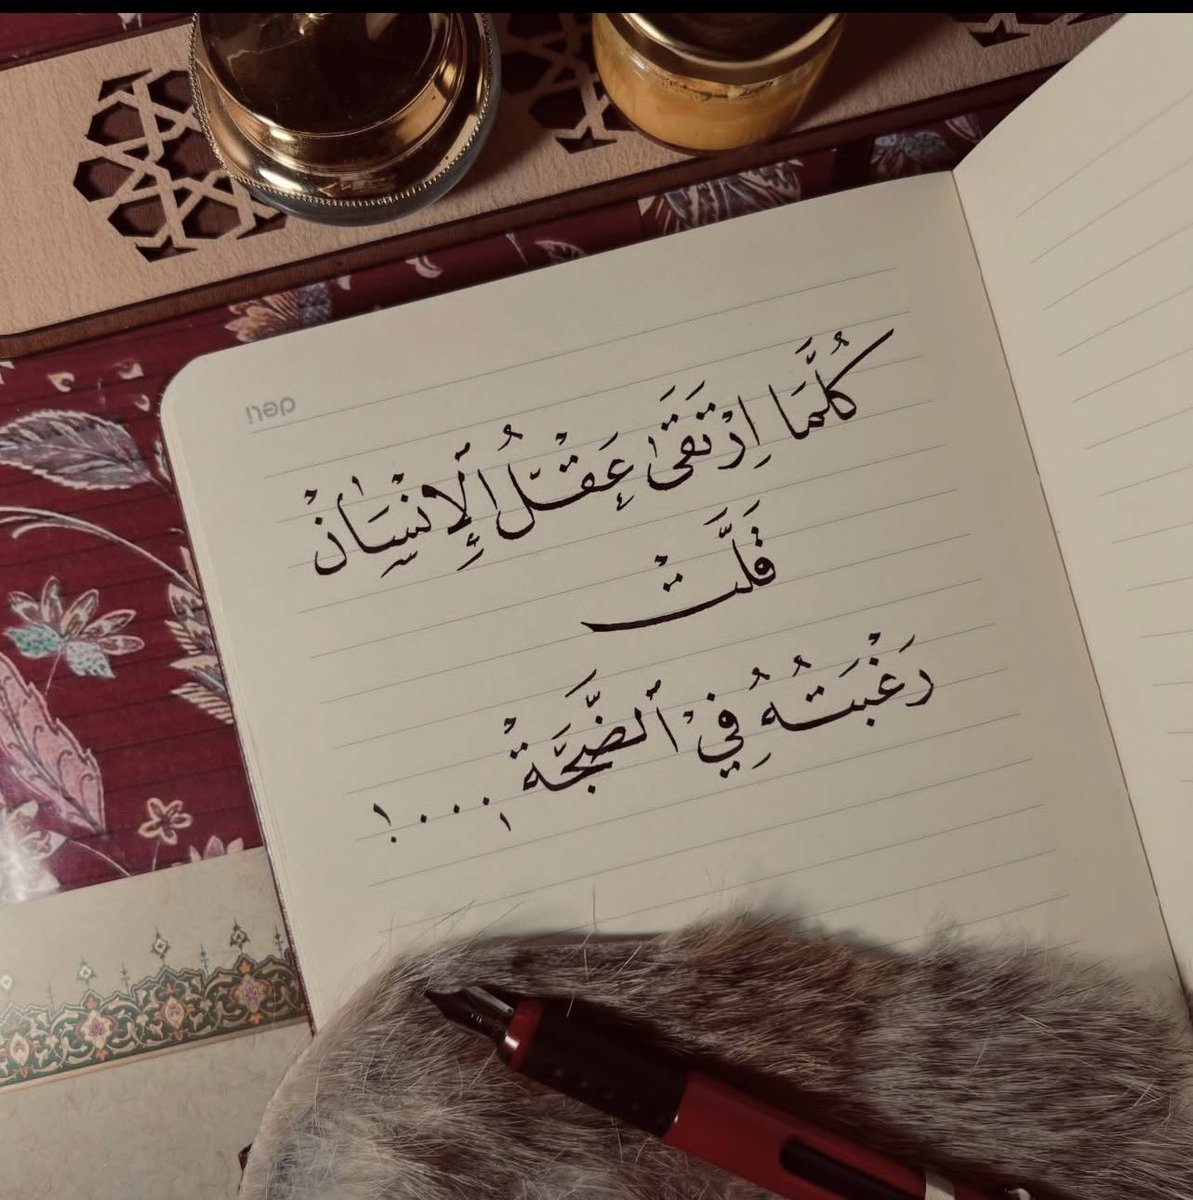 deli
كُلَّمَا اِرْتَقَىٰ عَقْلُ الْإِنْسَانْ
قَلَّتْ
رَغْبَتُهُ فِيْ ٱلضَّجَّةْ....!